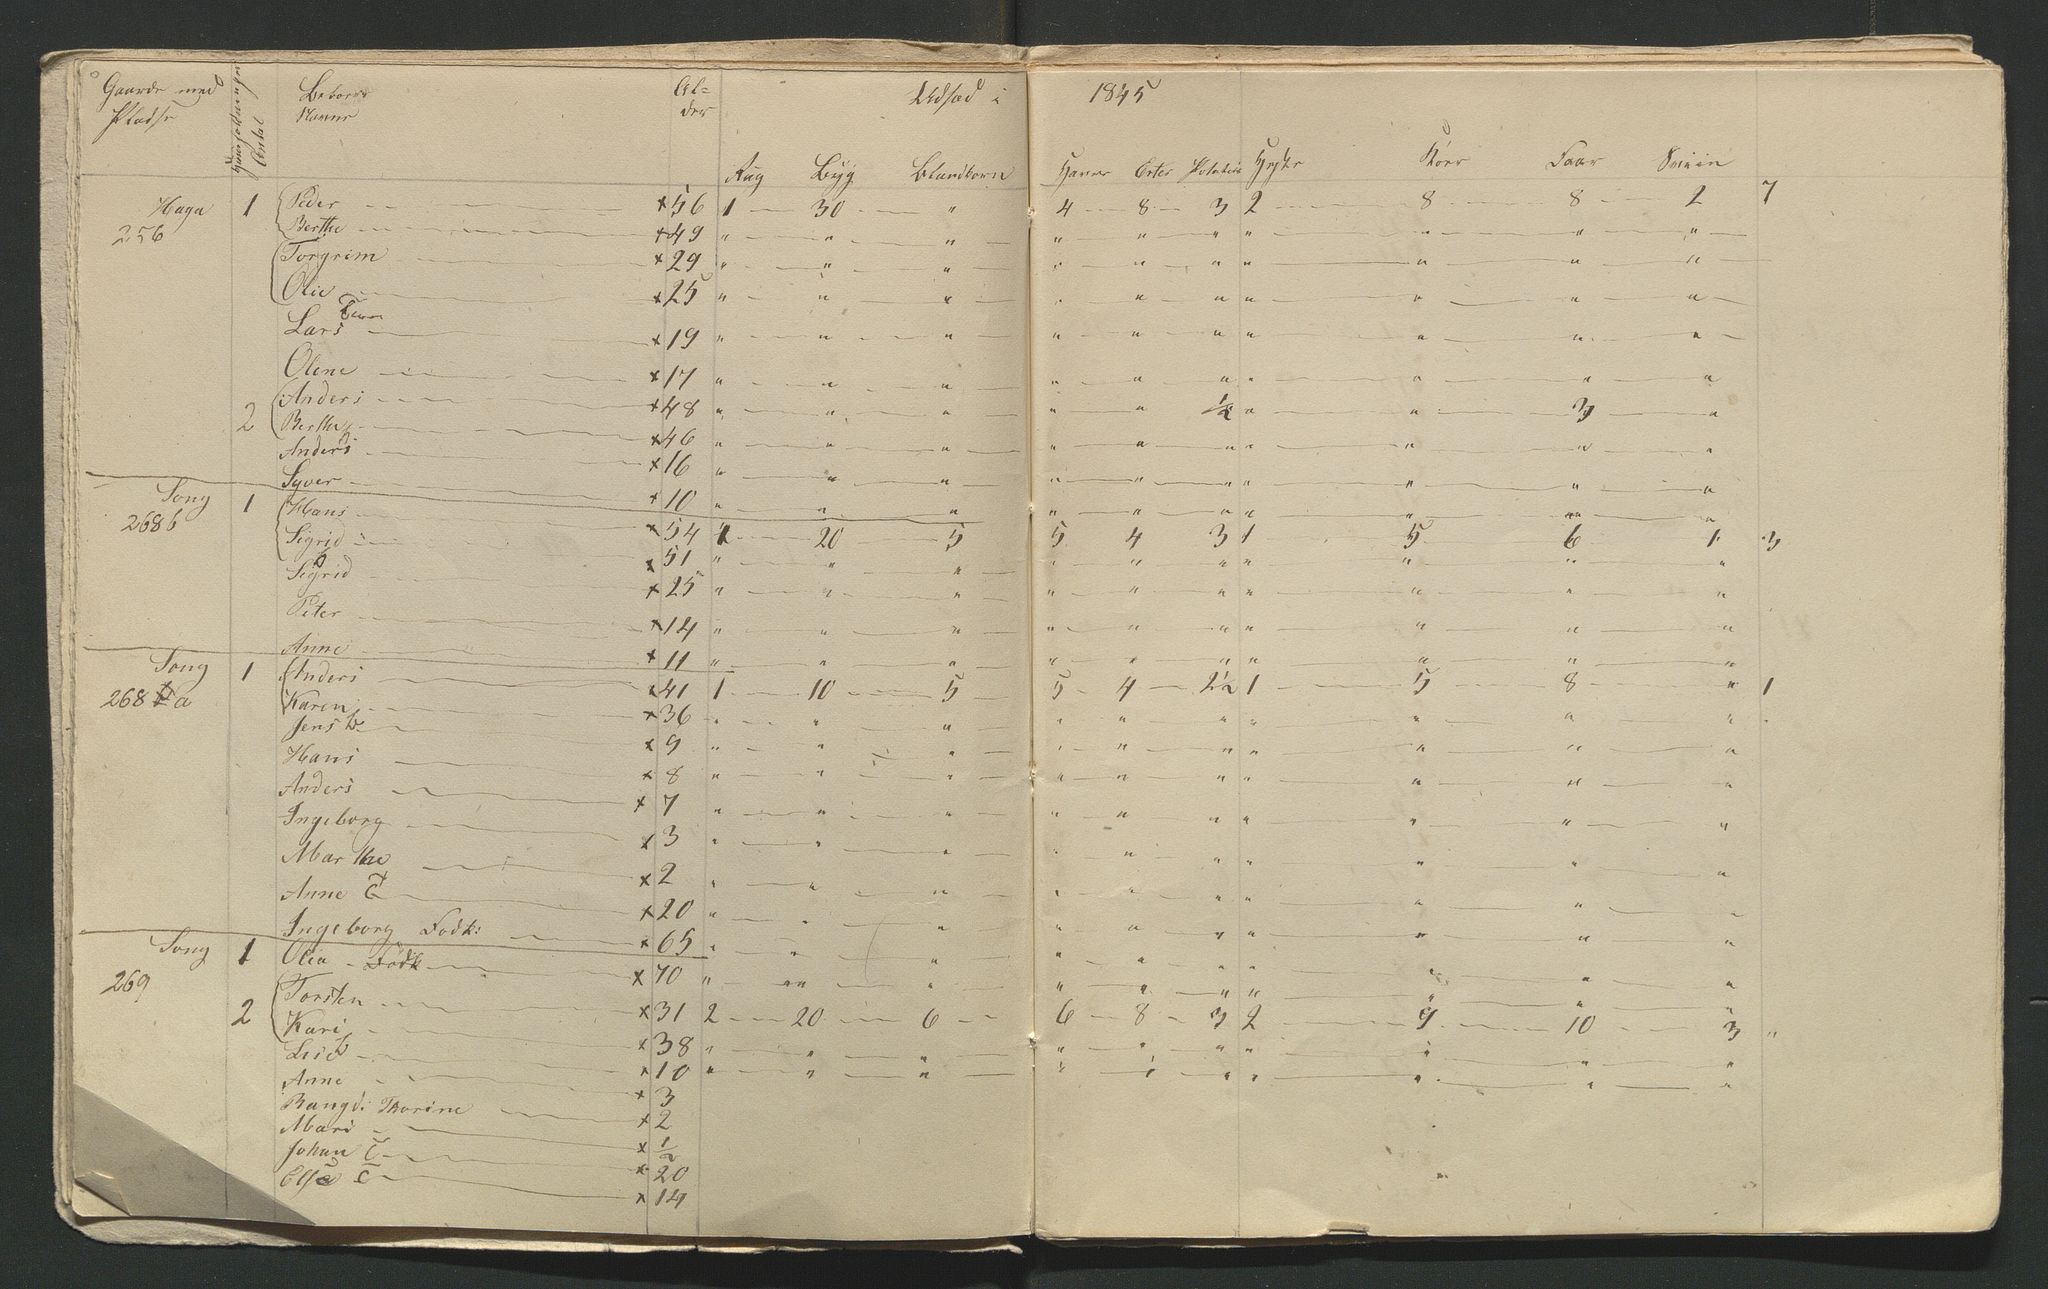 Gaarde med Pladse Huusholdninger Antal Beboere Navne Al= der Udsæd i 1845
Rug Byg Blandkorn Havre Erter Poteter Heste Køer Faar Sviin
Haga 1 Peder x 56 1 30 " 4 8 3 2 8 8 2 7
256 Berthe x 49 " " " " " " " " " "
Torgrim x 29 " " " " " " " " " "
Olia x 25 " " " " " " " " " "
Lars x 19 " " " " " " " " " "
Oline x 17 " " " " " " " " " "
2 Anders x 48 " " " " " 1/2 " " 3 "
Berthe x 46 " " " " " " " " " "
Anders x 16 " " " " " " " " " "
Syver x 10 " " " " " " " " " "
Song 1 Hans x 54 1 20 5 5 4 3 1 5 6 1 3
268 b Sigrid x 51 " " " " " " " " " "
Sigrid x 25 " " " " " " " " " "
Peter x 14 " " " " " " " " " "
Anne x 11 " " " " " " " " " "
Song 1 Anders x 41 1 10 5 5 4 2 1/2 1 5 8 " 1
268 a Karen x 36 " " " " " " " " " "
Jens x 9 " " " " " " " " " "
Hans x 8 " " " " " " " " " "
Anders x 7 " " " " " " " " " "
Ingeborg x 3 " " " " " " " " " "
Marthe x 2 " " " " " " " " " "
Anne T x 20 " " " " " " " " " "
Ingeborg Fodk: x 65 " " " " " " " " " "
Song 1 Olia Födk x 70 " " " " " " " " " "
269 Torsten x 31 2 20 6 6 8 3 2 9 10 3 "
2 Kari x 38 " " " " " " " " " "
Lisd x 10 " " " " " " " " " "
Anne x 3
Rangdi Thorine x 2
Mari x 1/2
Johan T x 20
Else T x 14